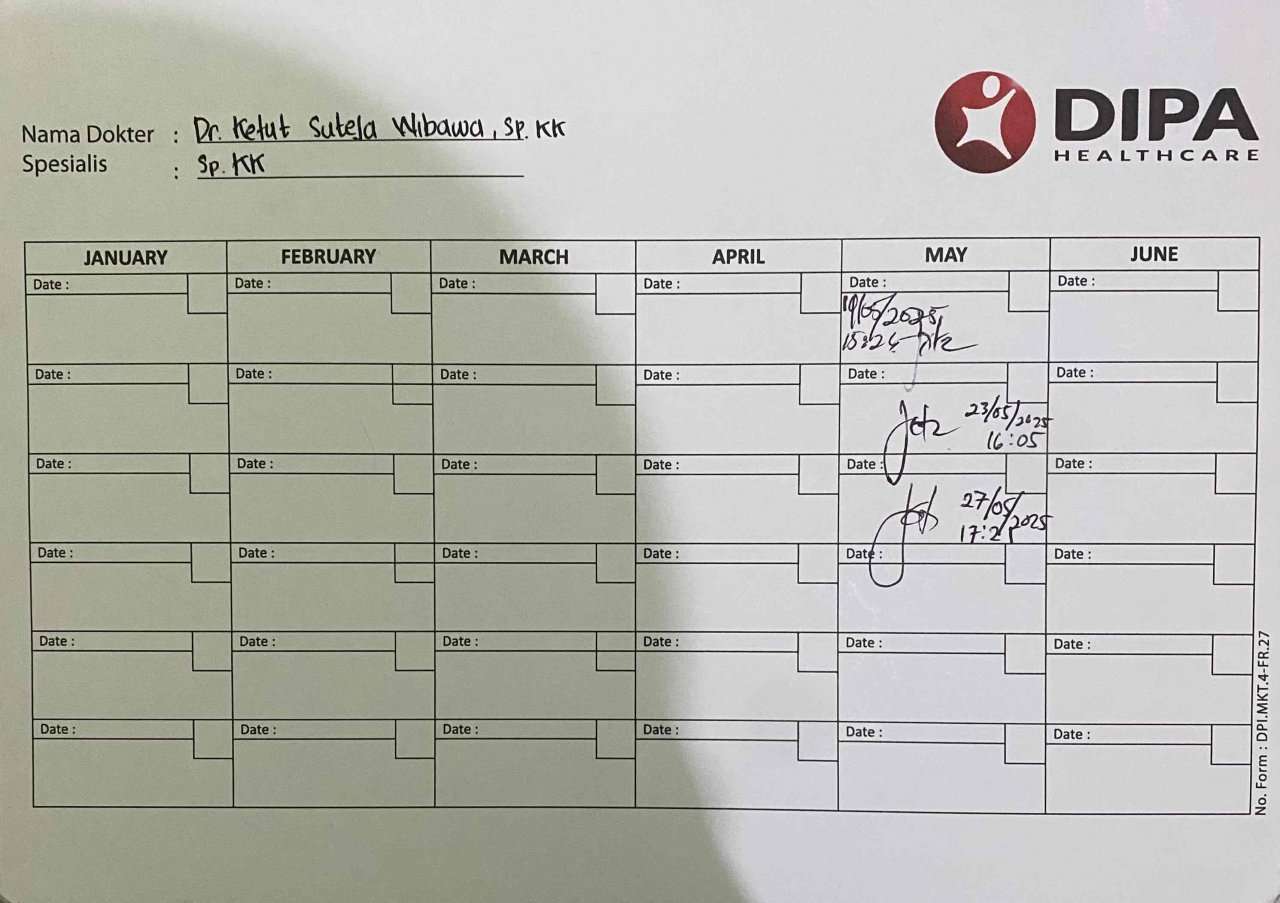 DIPA
HEALTHCARE
Nama Dokter : Dr. Ketut Suteja Wibawa, Sp. KK
Spesialis : Sp. KK
JANUARY FEBRUARY MARCH APRIL MAY JUNE
Date : Date : Date : Date : Date : Date :
19/05/2025
15:24
Date : Date : Date : Date : Date : Date :
23/05/2025
16:05
Date : Date : Date : Date : Date : Date :
27/05/2025
17:21
Date : Date : Date : Date : Date : Date :
Date : Date : Date : Date : Date : Date :
Date : Date : Date : Date : Date : Date :
No. Form : DPI.MKT.4-FR.27